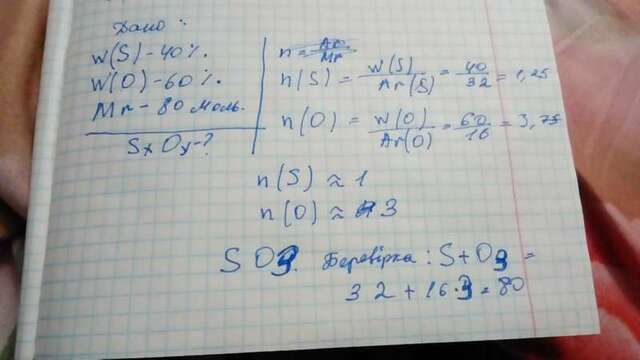 Дано:
W(S) - 40%.
W(O) - 60%.
Mr - 80 моль.
SxOy - ?
n(S) = W(S) / Ar(S) = 40 / 32 = 1,25
n(O) = W(O) / Ar(O) = 60 / 16 = 3,75
n(S) ≈ 1
n(O) ≈ 3
SO3. Перевірка: S+O3 =
32 + 16·3 = 80